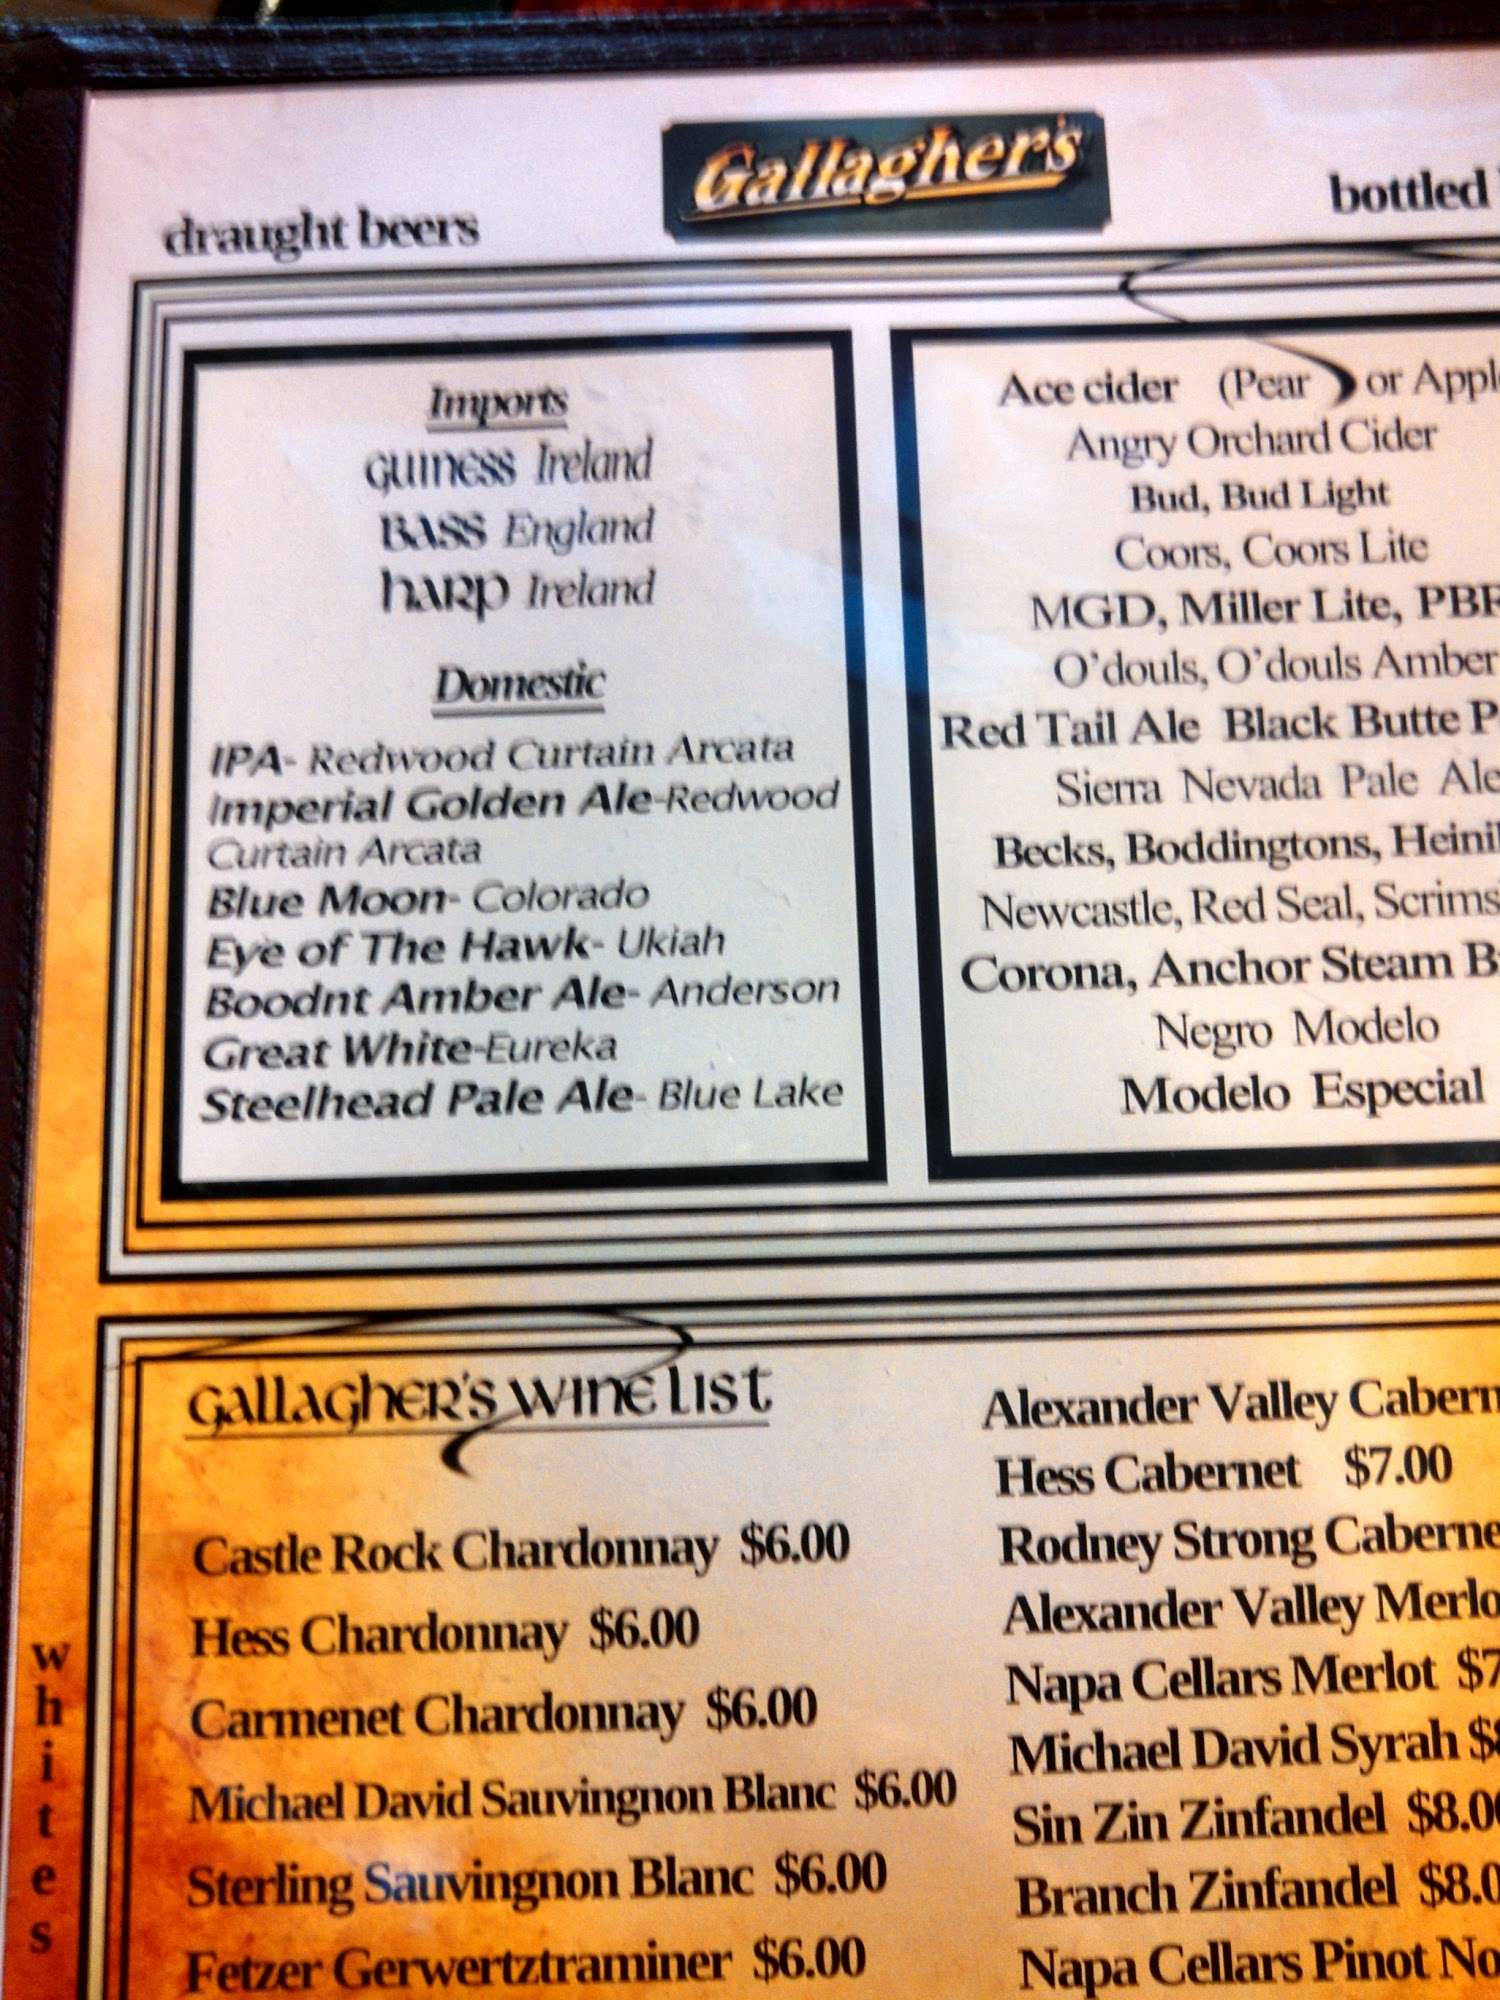 Gallagher's
draught beers
bottled
Imports
Guiness Ireland
BASS England
harp Ireland
Domestic
IPA- Redwood Curtain Arcata
Imperial Golden Ale-Redwood
Curtain Arcata
Blue Moon- Colorado
Eye of The Hawk- Ukiah
Boodnt Amber Ale- Anderson
Great White-Eureka
Steelhead Pale Ale- Blue Lake
Ace cider (Pear ) or Appl
Angry Orchard Cider
Bud, Bud Light
Coors, Coors Lite
MGD, Miller Lite, PB
O'douls, O'douls Amber
Red Tail Ale Black Butte P
Sierra Nevada Pale Ale
Becks, Boddingtons, Heini
Newcastle, Red Seal, Scrims
Corona, Anchor Steam B
Negro Modelo
Modelo Especial
Gallagher's Wine List
whites
Castle Rock Chardonnay $6.00
Hess Chardonnay $6.00
Carmenet Chardonnay $6.00
Michael David Sauvingnon Blanc $6.00
Sterling Sauvingnon Blanc $6.00
Fetzer Gerwertztraminer $6.00
Alexander Valley Cabern
Hess Cabernet $7.00
Rodney Strong Caberne
Alexander Valley Merlo
Napa Cellars Merlot $7
Michael David Syrah $8
Sin Zin Zinfandel $8.00
Branch Zinfandel $8.0
Napa Cellars Pinot No